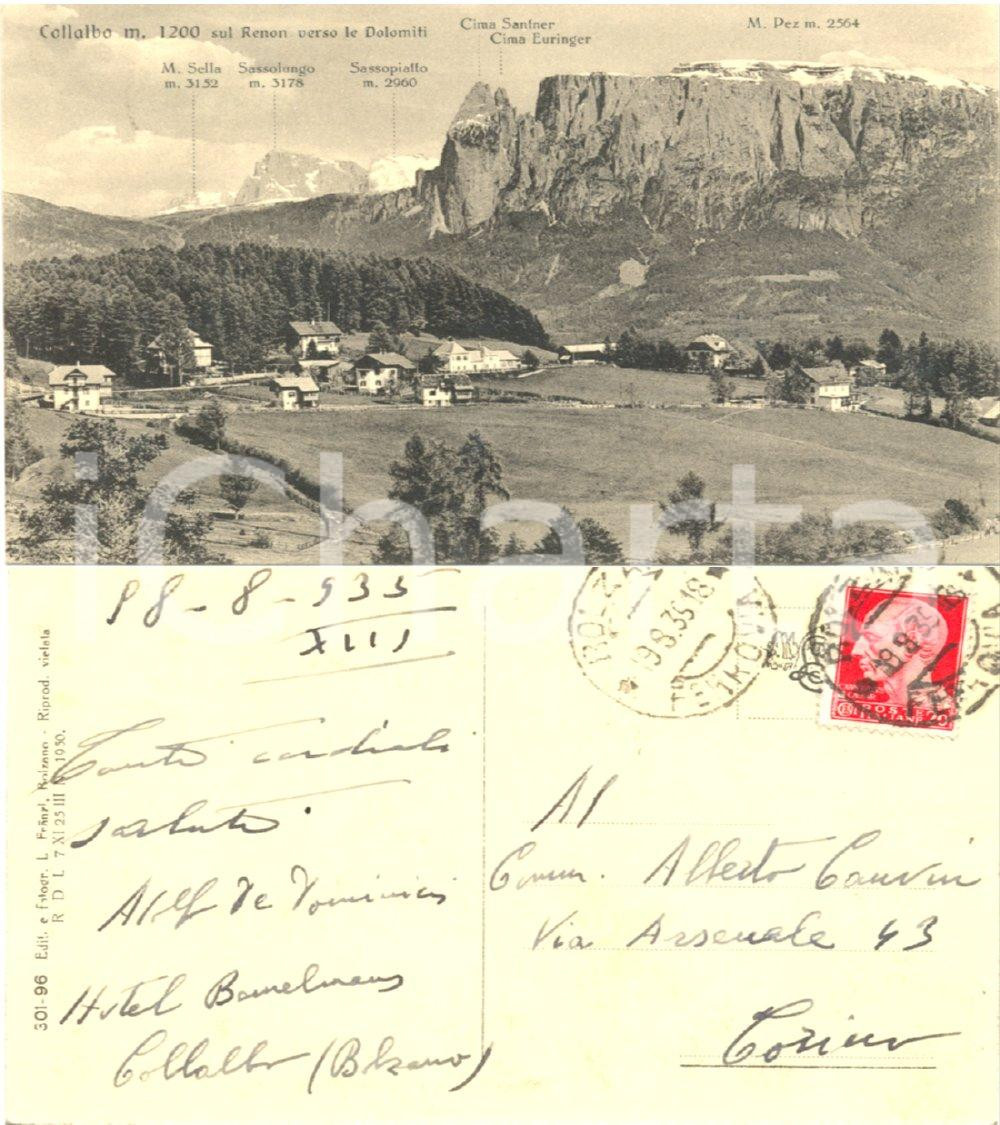 Collalbo m. 1200 sul Renon verso le Dolomiti
Cima Santner
Cima Euringer
M. Pez m. 2564
M. Sella
m. 3152
Sassolungo
m. 3178
Sassopiatto
m. 2960
icharta
18-8-935
XIII
Tanti cordiali
saluti
De Dominicis
Hotel
Collalbo (Bolzano)
301-96 Edit. e Fotogr. L. Fränzl, Bolzano - Riprod. vietata
R D L 7 XI 25 III N 1950.
19.8.35.18
FERROVIA
19.8.35.18
POSTE
ITALIANE
20
Al
Comm. Alberto Cauvin
Via Arsenale 43
Torino